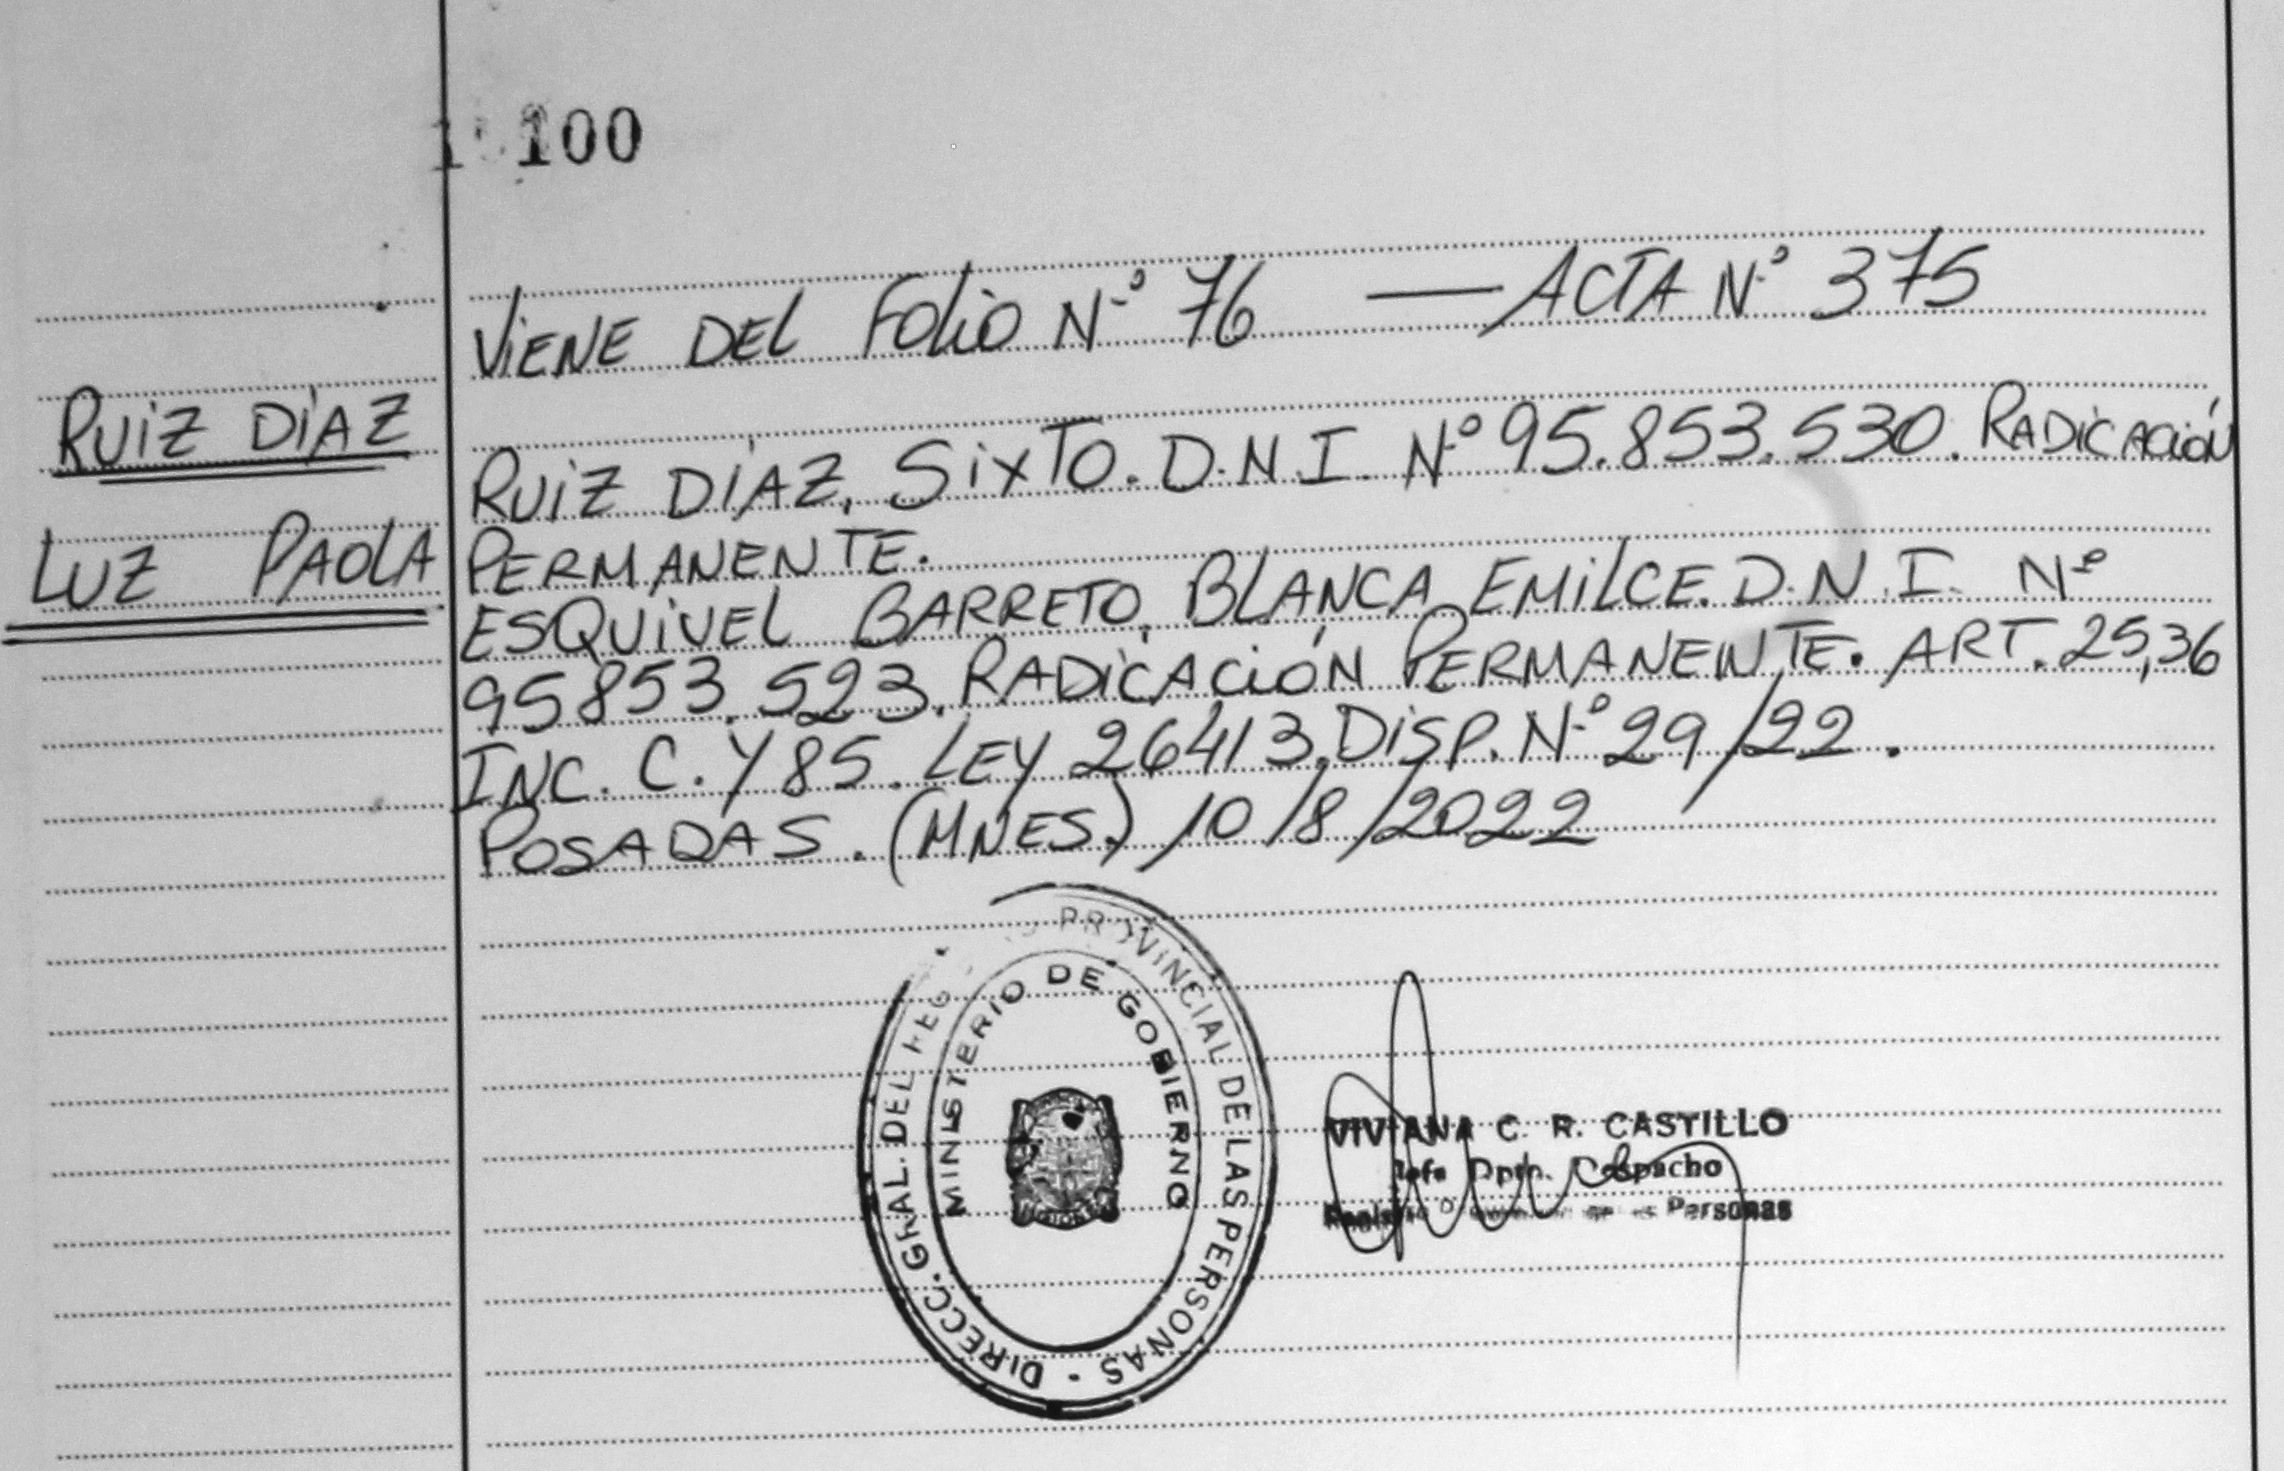 100
VIENE DEL FOLIO Nº 76 — ACTA Nº 375
RUIZ DÍAZ
LUZ PAOLA
RUIZ DÍAZ, SIXTO. D.N.I. Nº 95.853.530. RADICACIÓN
PERMANENTE.
ESQUIVEL BARRETO, BLANCA EMILCE. D.N.I. Nº
95853.523. RADICACIÓN PERMANENTE. ART. 25,36
INC. C. Y 85. LEY 26413. DISP. Nº 29/22.
POSADAS. (MNES.) 10/8/2022
DIRECC. GRAL. DEL PROVINCIAL DE LAS PERSONAS
MINISTERIO DE GOBIERNO
VIVIANA C. R. CASTILLO
Jefe Dpto. Despacho
Personas